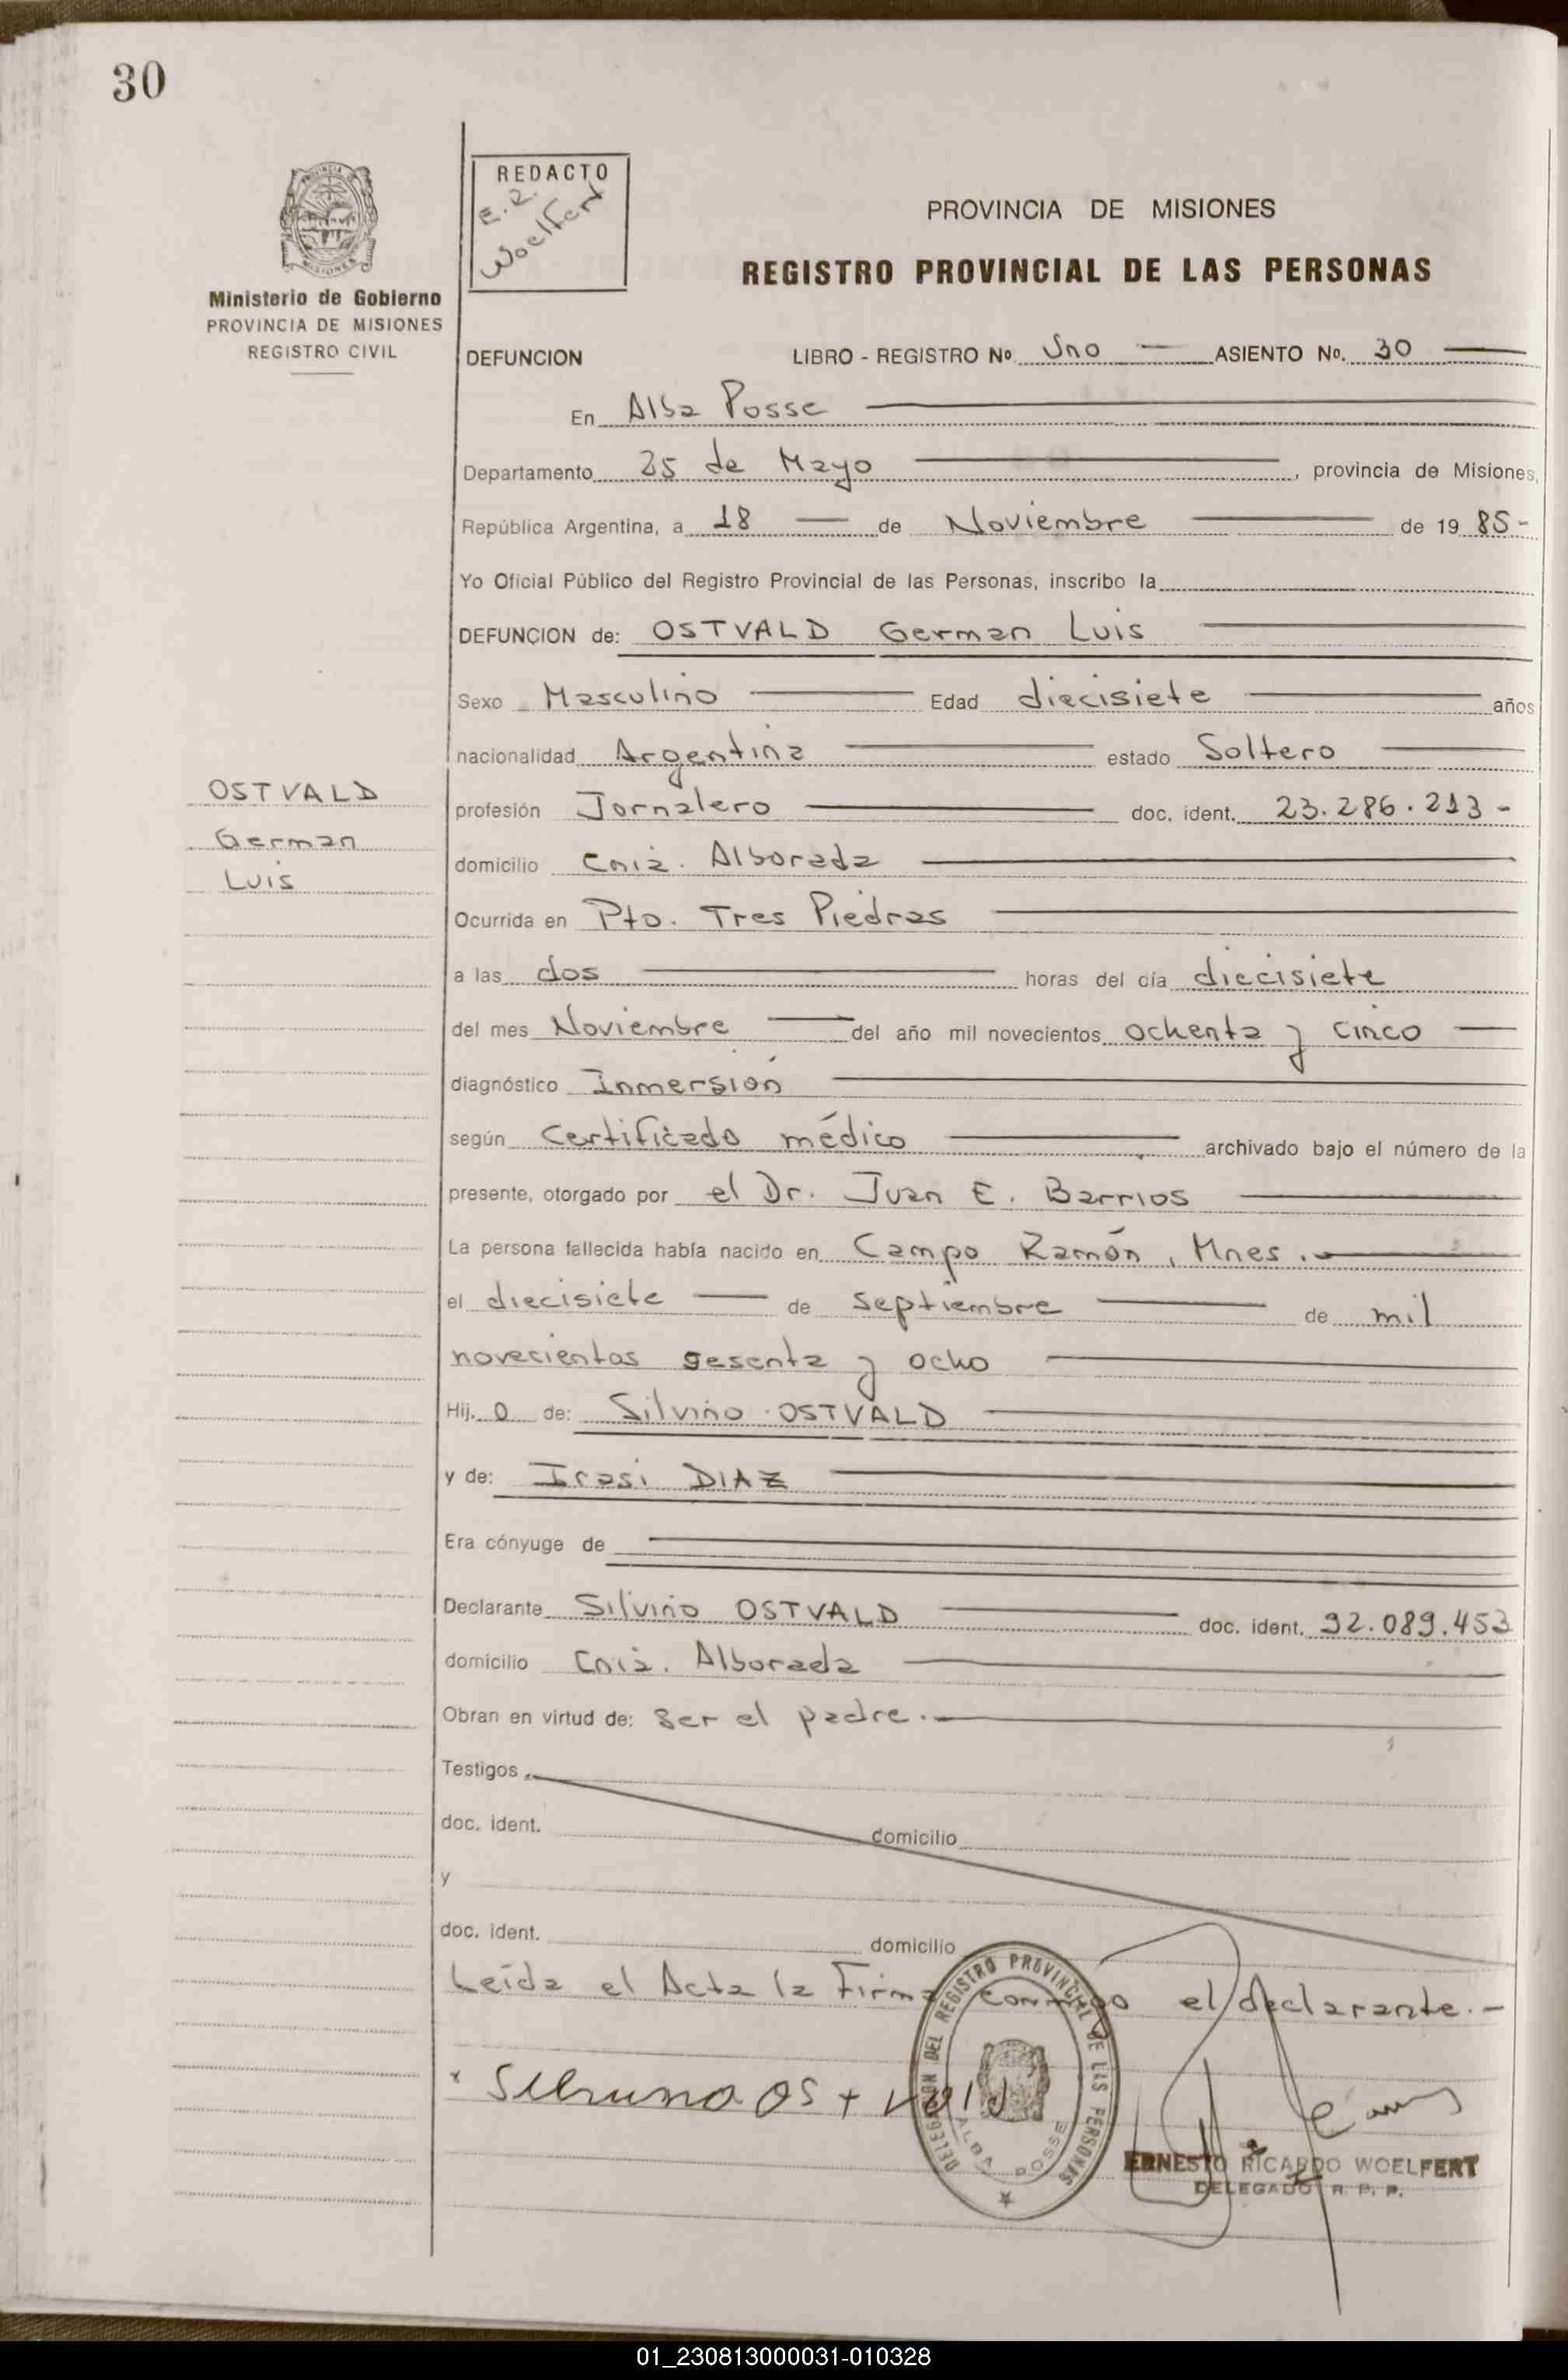 30
PROVINCIA
MISIONES
Ministerio de Gobierno
PROVINCIA DE MISIONES
REGISTRO CIVIL
REDACTO
E. R.
Woelfert
PROVINCIA DE MISIONES
REGISTRO PROVINCIAL DE LAS PERSONAS
DEFUNCION LIBRO - REGISTRO Nº Uno ASIENTO Nº. 30
En Alba Posse
Departamento 25 de Mayo, provincia de Misiones,
República Argentina, a 18 de Noviembre de 19 85-
Yo Oficial Público del Registro Provincial de las Personas, inscribo la
DEFUNCION de: OSTVALD German Luis
Sexo Masculino Edad diecisiete años
nacionalidad Argentina estado Soltero
OSTVALD
German
Luis
profesión Jornalero doc. ident. 23.286.213-
domicilio Cnia. Alborada
Ocurrida en Pto. Tres Piedras
a las dos horas del día diecisiete
del mes Noviembre del año mil novecientos ochenta y cinco
diagnóstico Inmersión
según Certificado médico archivado bajo el número de la
presente, otorgado por el Dr. Juan E. Barrios
La persona fallecida había nacido en Campo Ramón, Mnes.-
el diecisiete de septiembre de mil
novecientos sesenta y ocho
Hij. o de: Silvino OSTVALD
y de: Irasi DIAZ
Era cónyuge de
Declarante Silvino OSTVALD doc. ident. 92.089.453
domicilio Cnia. Alborada
Obran en virtud de: Ser el padre.-
Testigos
doc. ident. domicilio
y
doc. ident. domicilio
Leída el Acta la Firma conmigo el declarante.-
DELEGACION DEL REGISTRO PROVINCIAL DE LAS PERSONAS
ALBA POSSE
ERNESTO RICARDO WOELFERT
DELEGADO R. P. P.
01_230813000031-010328